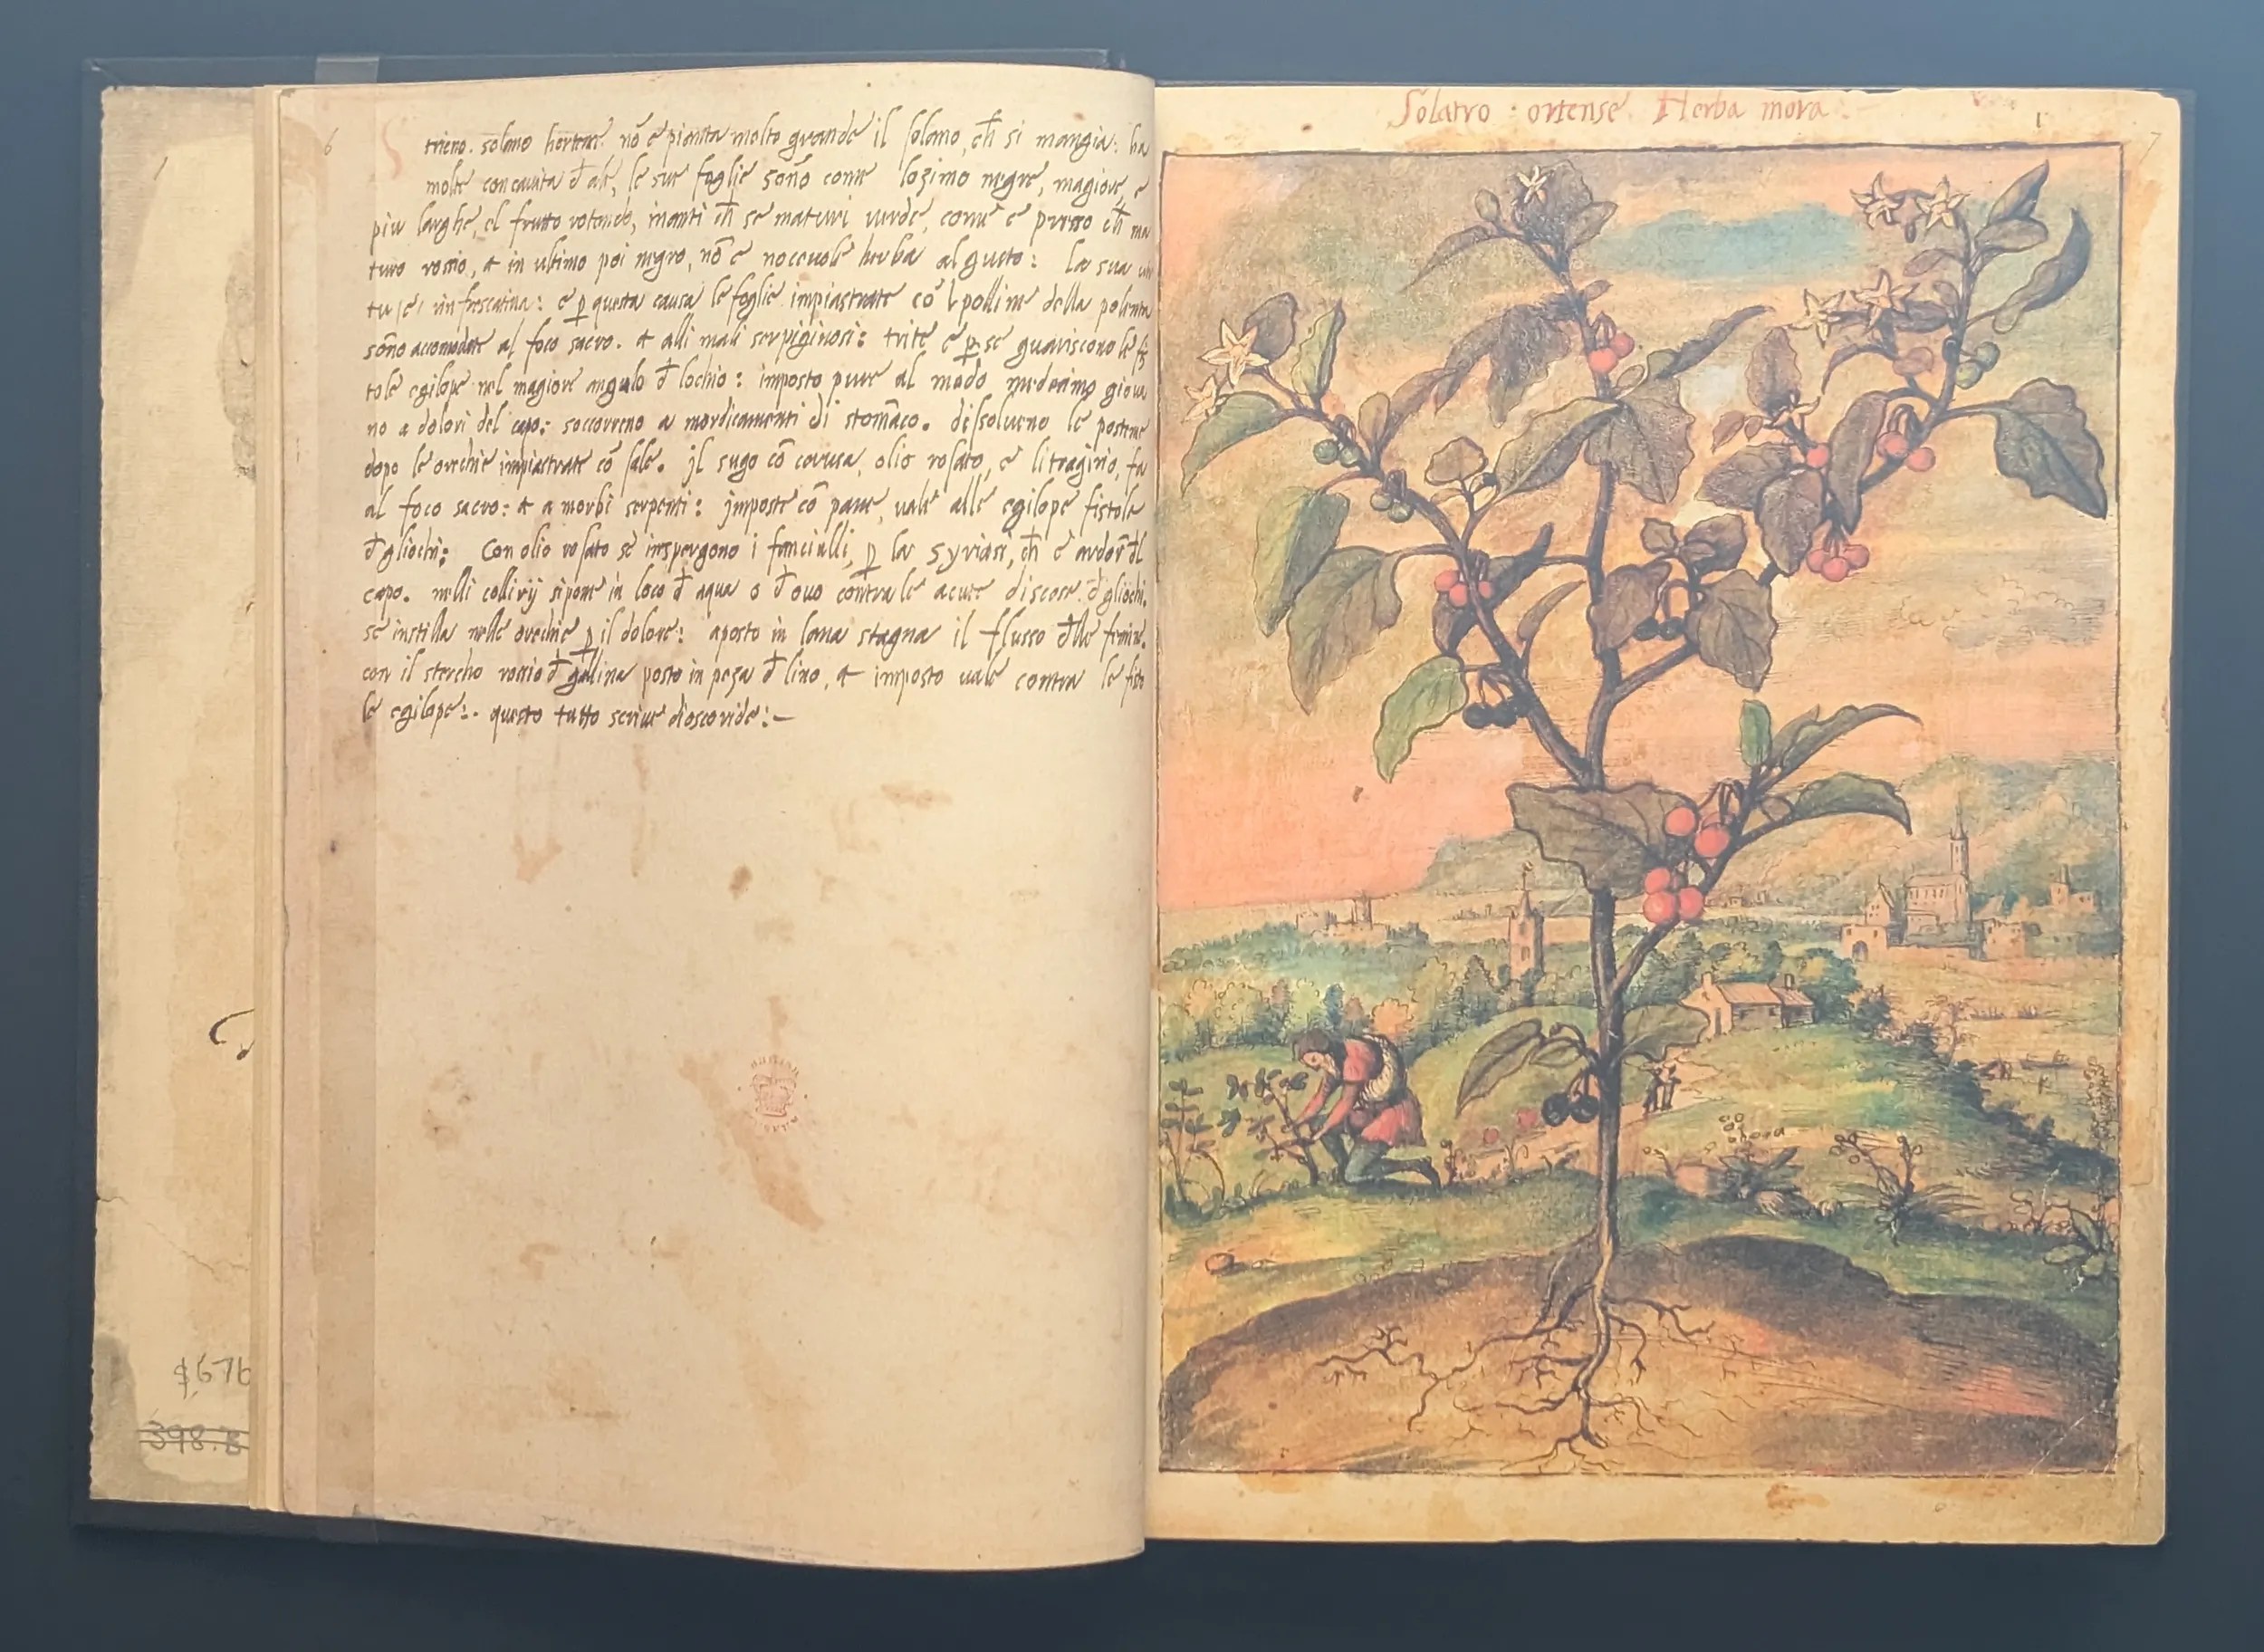 6
S
trieno. solano hortense nō è pianta molto grande il solano, ch̄ si mangia: ha
molte concauita đ ale, le sue foglie sōno come lozimo negre, magiore, e
piu larghe, el frutto rotondo, inanti ch̄ se maturi uerde, come è presso ch̄ ma
turo rosso, & in ultimo poi negro, nō è noceuole herba al gusto: La sua
tu è rinfrescatiua: è ꝑ questa causa le foglie impiastrate cō l polline della polenta
sōno accomodate al foco sacro. & alli mali serpiginosi: trite è ꝑ se guariscono le fis
tole egilope nel magiore angulo đ lochio: imposto pure al modo medesimo gioua
no a dolori del capo: soccorreno a mordicamenti di stomaco. dissolueno le posteme
dopo le orechie impiastrate cō sale. jl sugo cō cerusa, olio rosato, e litragirio, fa
al foco sacro: & a morbi serpenti: jmposte cō pane, uale alle egilope fistole
đ gliochi: Con olio rosato se inspergono i fanciulli, ꝑ la syriasi, ch̄ è ardor đl
capo. nelli collirij si pone in loco đ aqua o đ ouo contra le acute discese đ gliochi.
se instilla nelle orechie ꝑ il dolore: aposto in lana stagna il flusso đlle femine.
con il stercho rosso đ galina posto in peza đ lino, & imposto uale contra le fisto
le egilope:. questo tutto scriue dioscoride:—
$676
398.B
Solatro ortense Herba mora
1
7